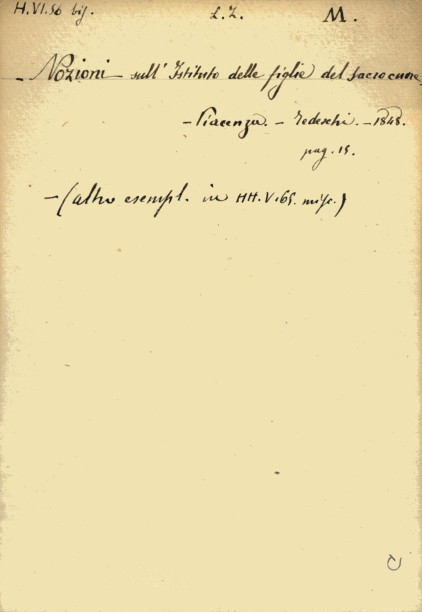 H.VI.56 bis. L.Z. M.
- Nozioni - sull' Istituto delle figlie del sacro cuore
- Piacenza. - Tedeschi. - 1848.
pag. 15.
- (altro esempl. in HH.V.65. misc.)